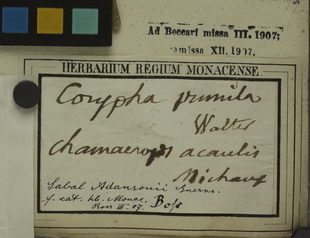 Ad Beccari missa III. 1907;
remissa XII. 1907.
HERBARIUM REGIUM MONACENSE.
Corypha pumila
Walter
chamaerops acaulis
Michaux
Sabal Adansonii Guerns.
f. cat. hb. Monac.
Bosc